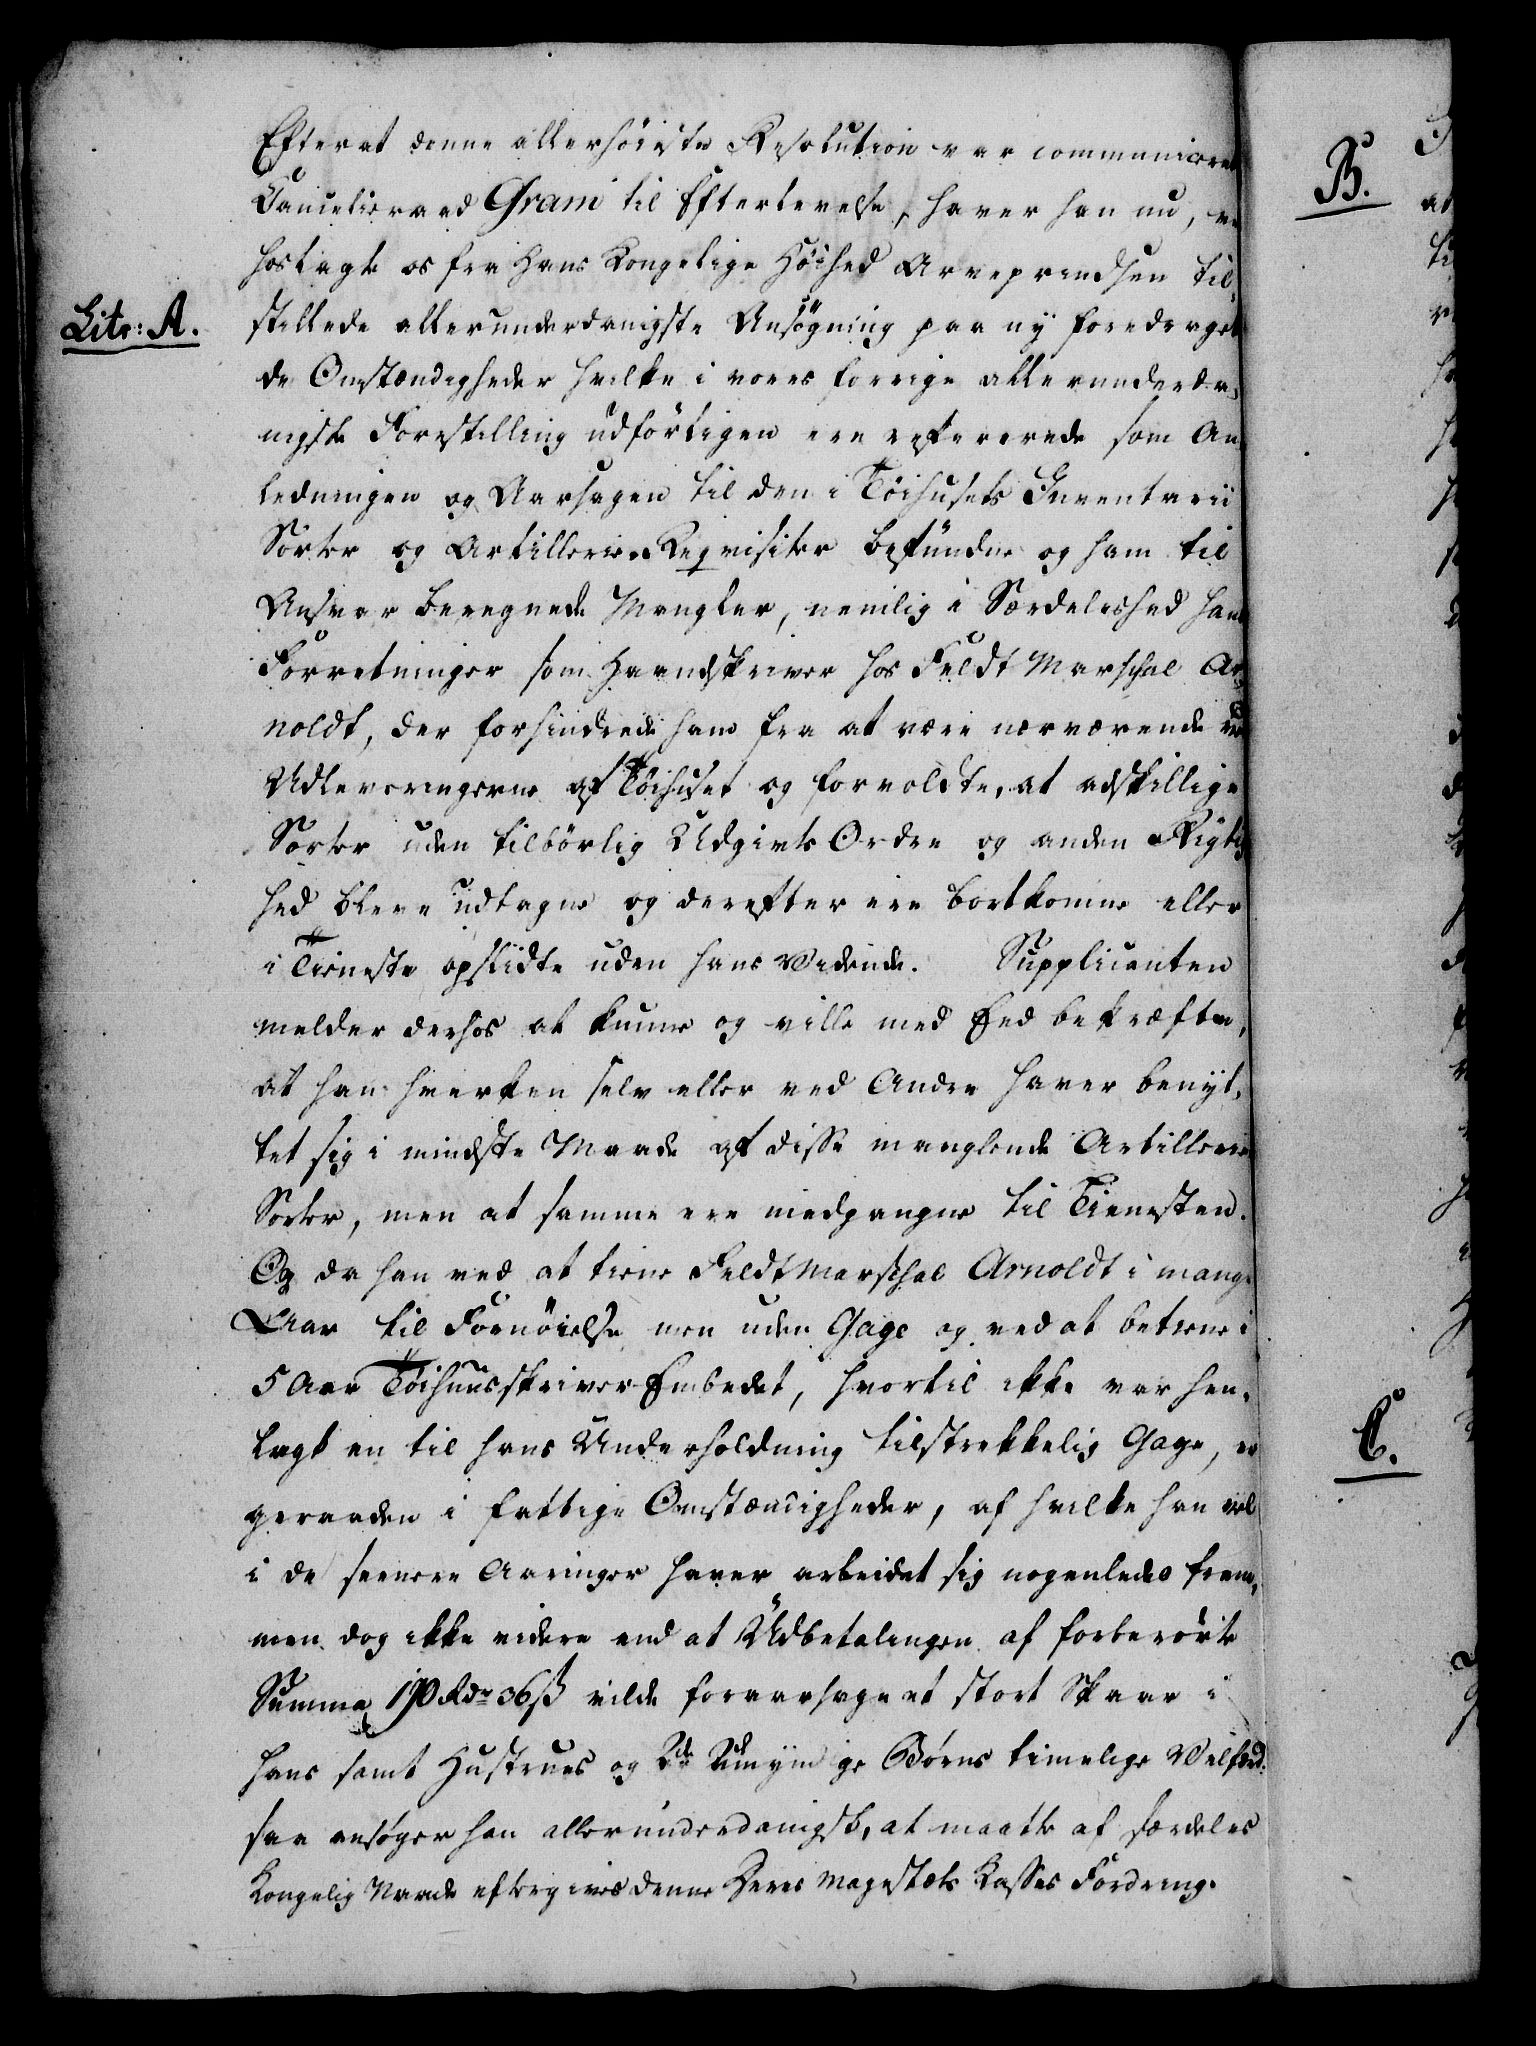 Efterat denne allerhöieste Resolution var communiceret
Cancelieraad Gram til Efterlevelse, haver han nu, ve
hoslagte os fra Hans Kongelige Höihed Arveprindsen til,
Litr: A.
stillede allerunderdanigste Ansögning paa ny foredraget
de Omstændigheder hvilke i vores forrige allerunderda,
nigste Forestilling udförligen ere refererede som An
ledningen og Aarsagen til den i Töihusets Inventarii
Sorter og Artillerie-Reqvisiter befundne og ham til
Ansvar beregnede Mangler, nemlig i Særdeleshed hans
Forretninger som Haandskriver hos Feldt Marschal Ar,
noldt, der forhindrede ham fra at være nærværende ved
Udleveringerne af Töihuset og forvoldte, at adskillige
Sorter uden tilbörlig Udgivts Ordre og anden Rigtig
hed bleve udtagne og derefter ere bortkomne eller
i Tieneste opslidte uden hans Vidende. Supplicanten
melder derhos at kunne og ville med Eed bekræfte,
at han hverken selv eller ved Andre haver benyt,
tet sig i mindste Maade af disse manglende Artillerie
Sorter, men at samme ere medgangne til Tienesten.
Og da han ved at tiene Feldtmarschal Arnoldt i mange
Aar til Fornöielse men uden Gage og ved at betiene i
5 Aar Töihuusskriver Embedet, hvortil ikke var hen,
lagt en til hans Underholdning tilstrekkelig Gage, er
geraaden i fattige Omstændigheder, af hvilke han vel
i de seenere Aaringer haver arbeidet sig nogenledes frem,
men dog ikke videre end at Udbetalingen af forberörte
Summa 190 Rdr 36 ß vilde foraarsage et stort Skaar i
hans samt Hustrues og 2de Umyndige Börns timelige Velfærd.
saa ansöger han allerunderdanigst, at maatte af særdeles
Kongelig Naade eftergives denne Deres Majestæts Kasses Fordring.
B.
C.